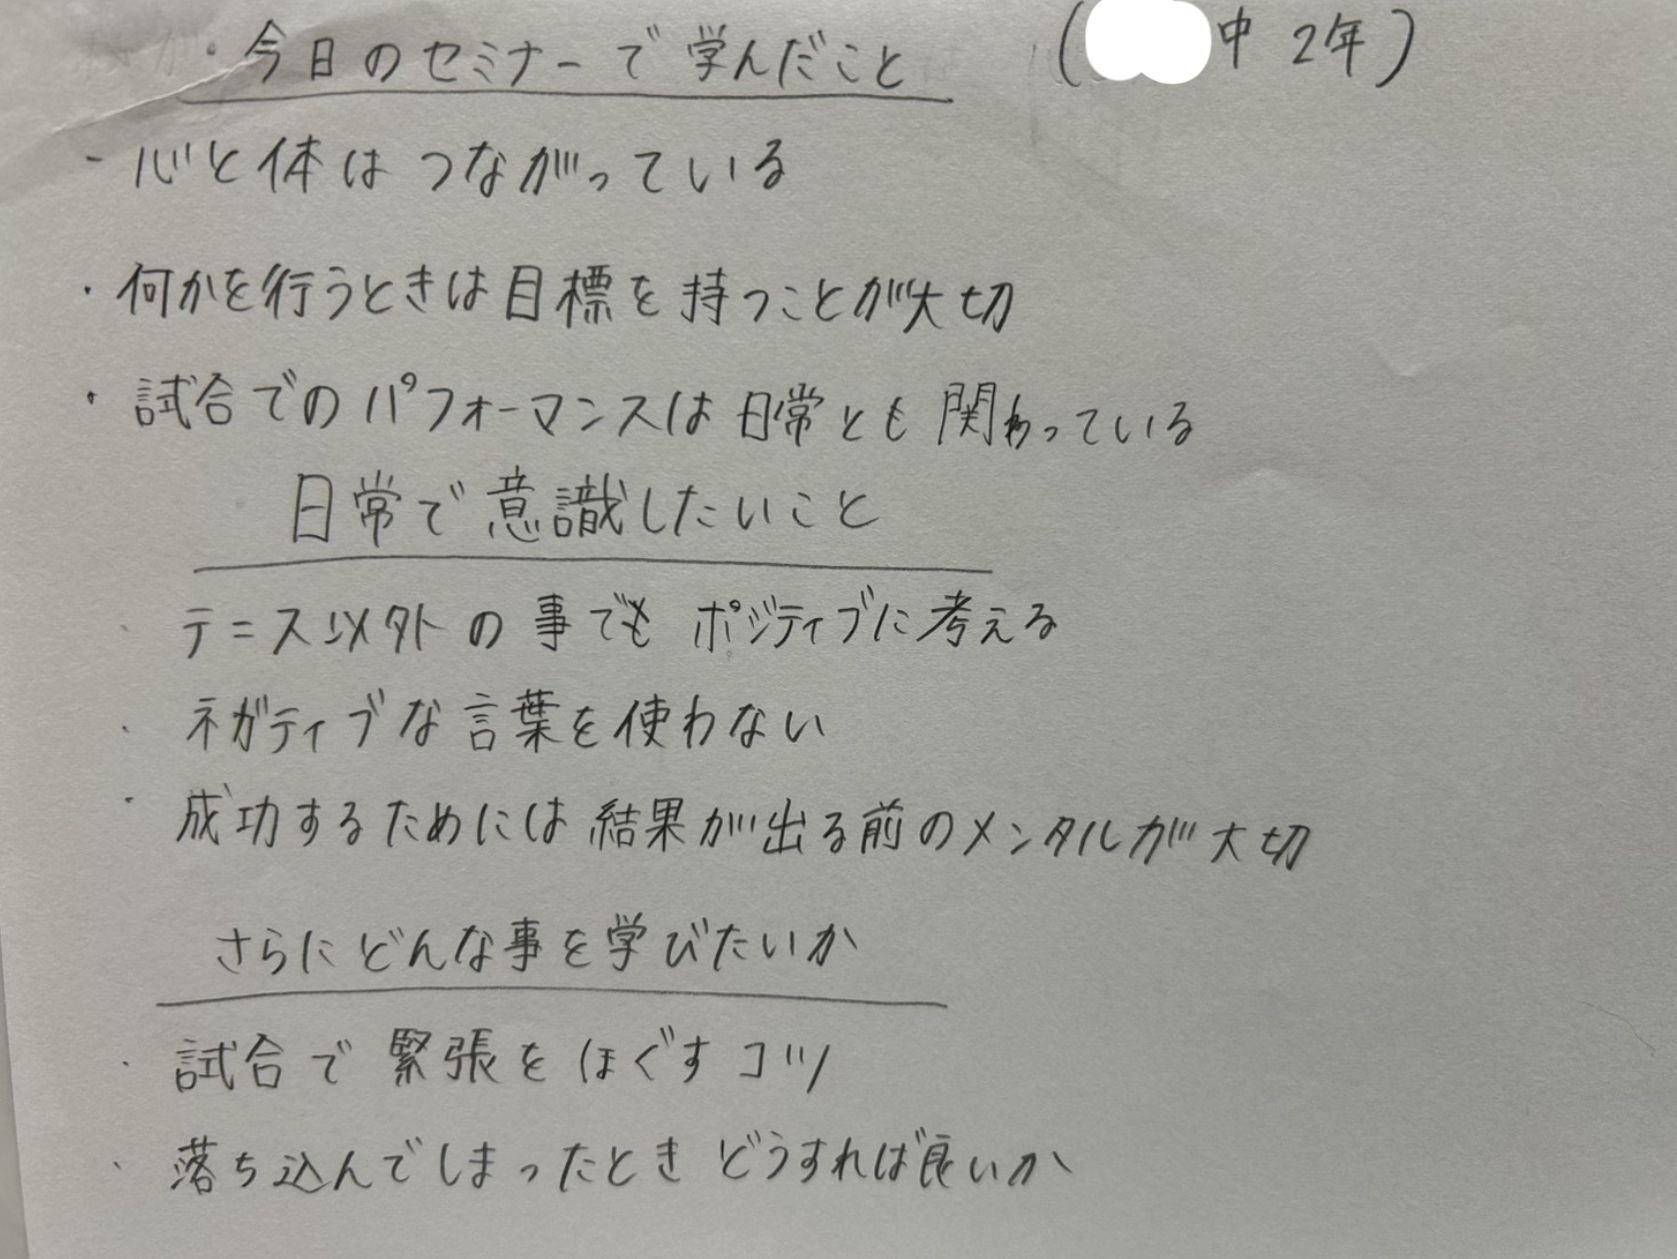 ・今日のセミナーで学んだこと (中 2年)
- 心と体はつながっている
・何かを行うときは目標を持つことが大切
・試合でのパフォーマンスは日常とも関わっている
日常で意識したいこと
・テニス以外の事でもポジティブに考える
・ネガティブな言葉を使わない
・成功するためには結果が出る前のメンタルが大切
さらにどんな事を学びたいか
・試合で緊張をほぐすコツ
・落ち込んでしまったときどうすれば良いか